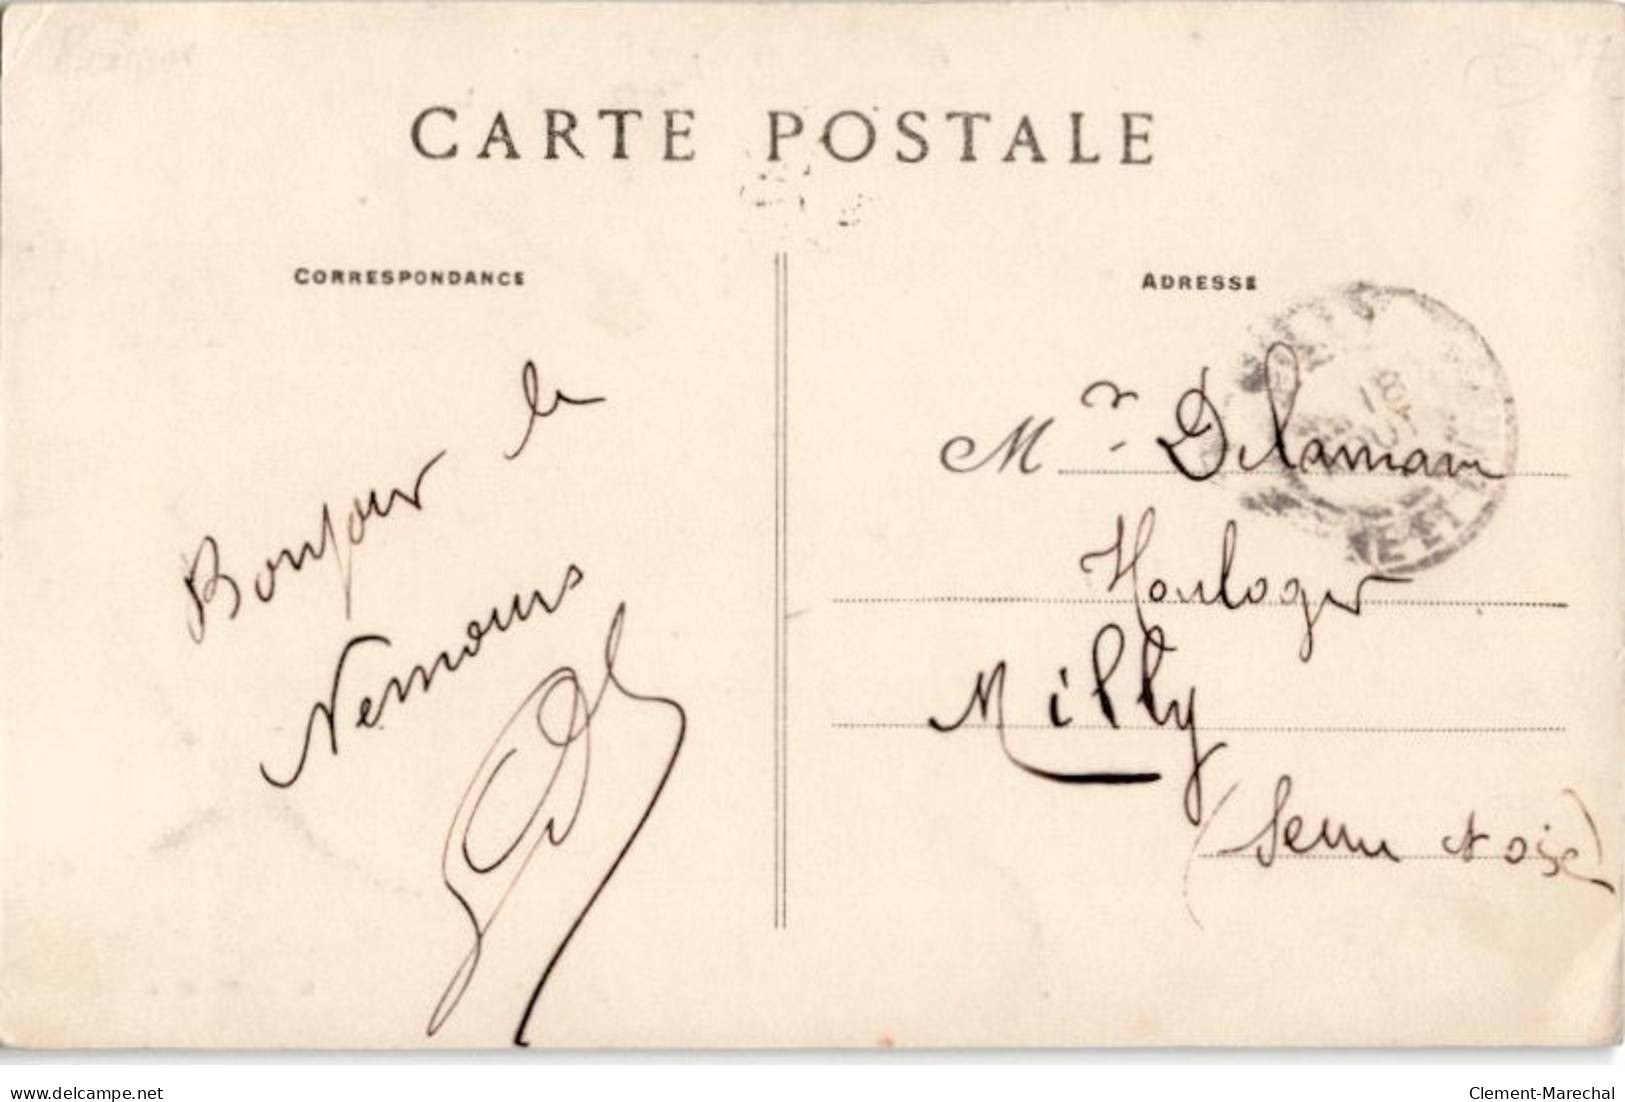 CARTE POSTALE
CORRESPONDANCE
ADRESSE
Bonjour de
Nemours
Mr Delamare
Horloger
Milly
(Seine et Oise)
delcampe.net
Clement-Marechal